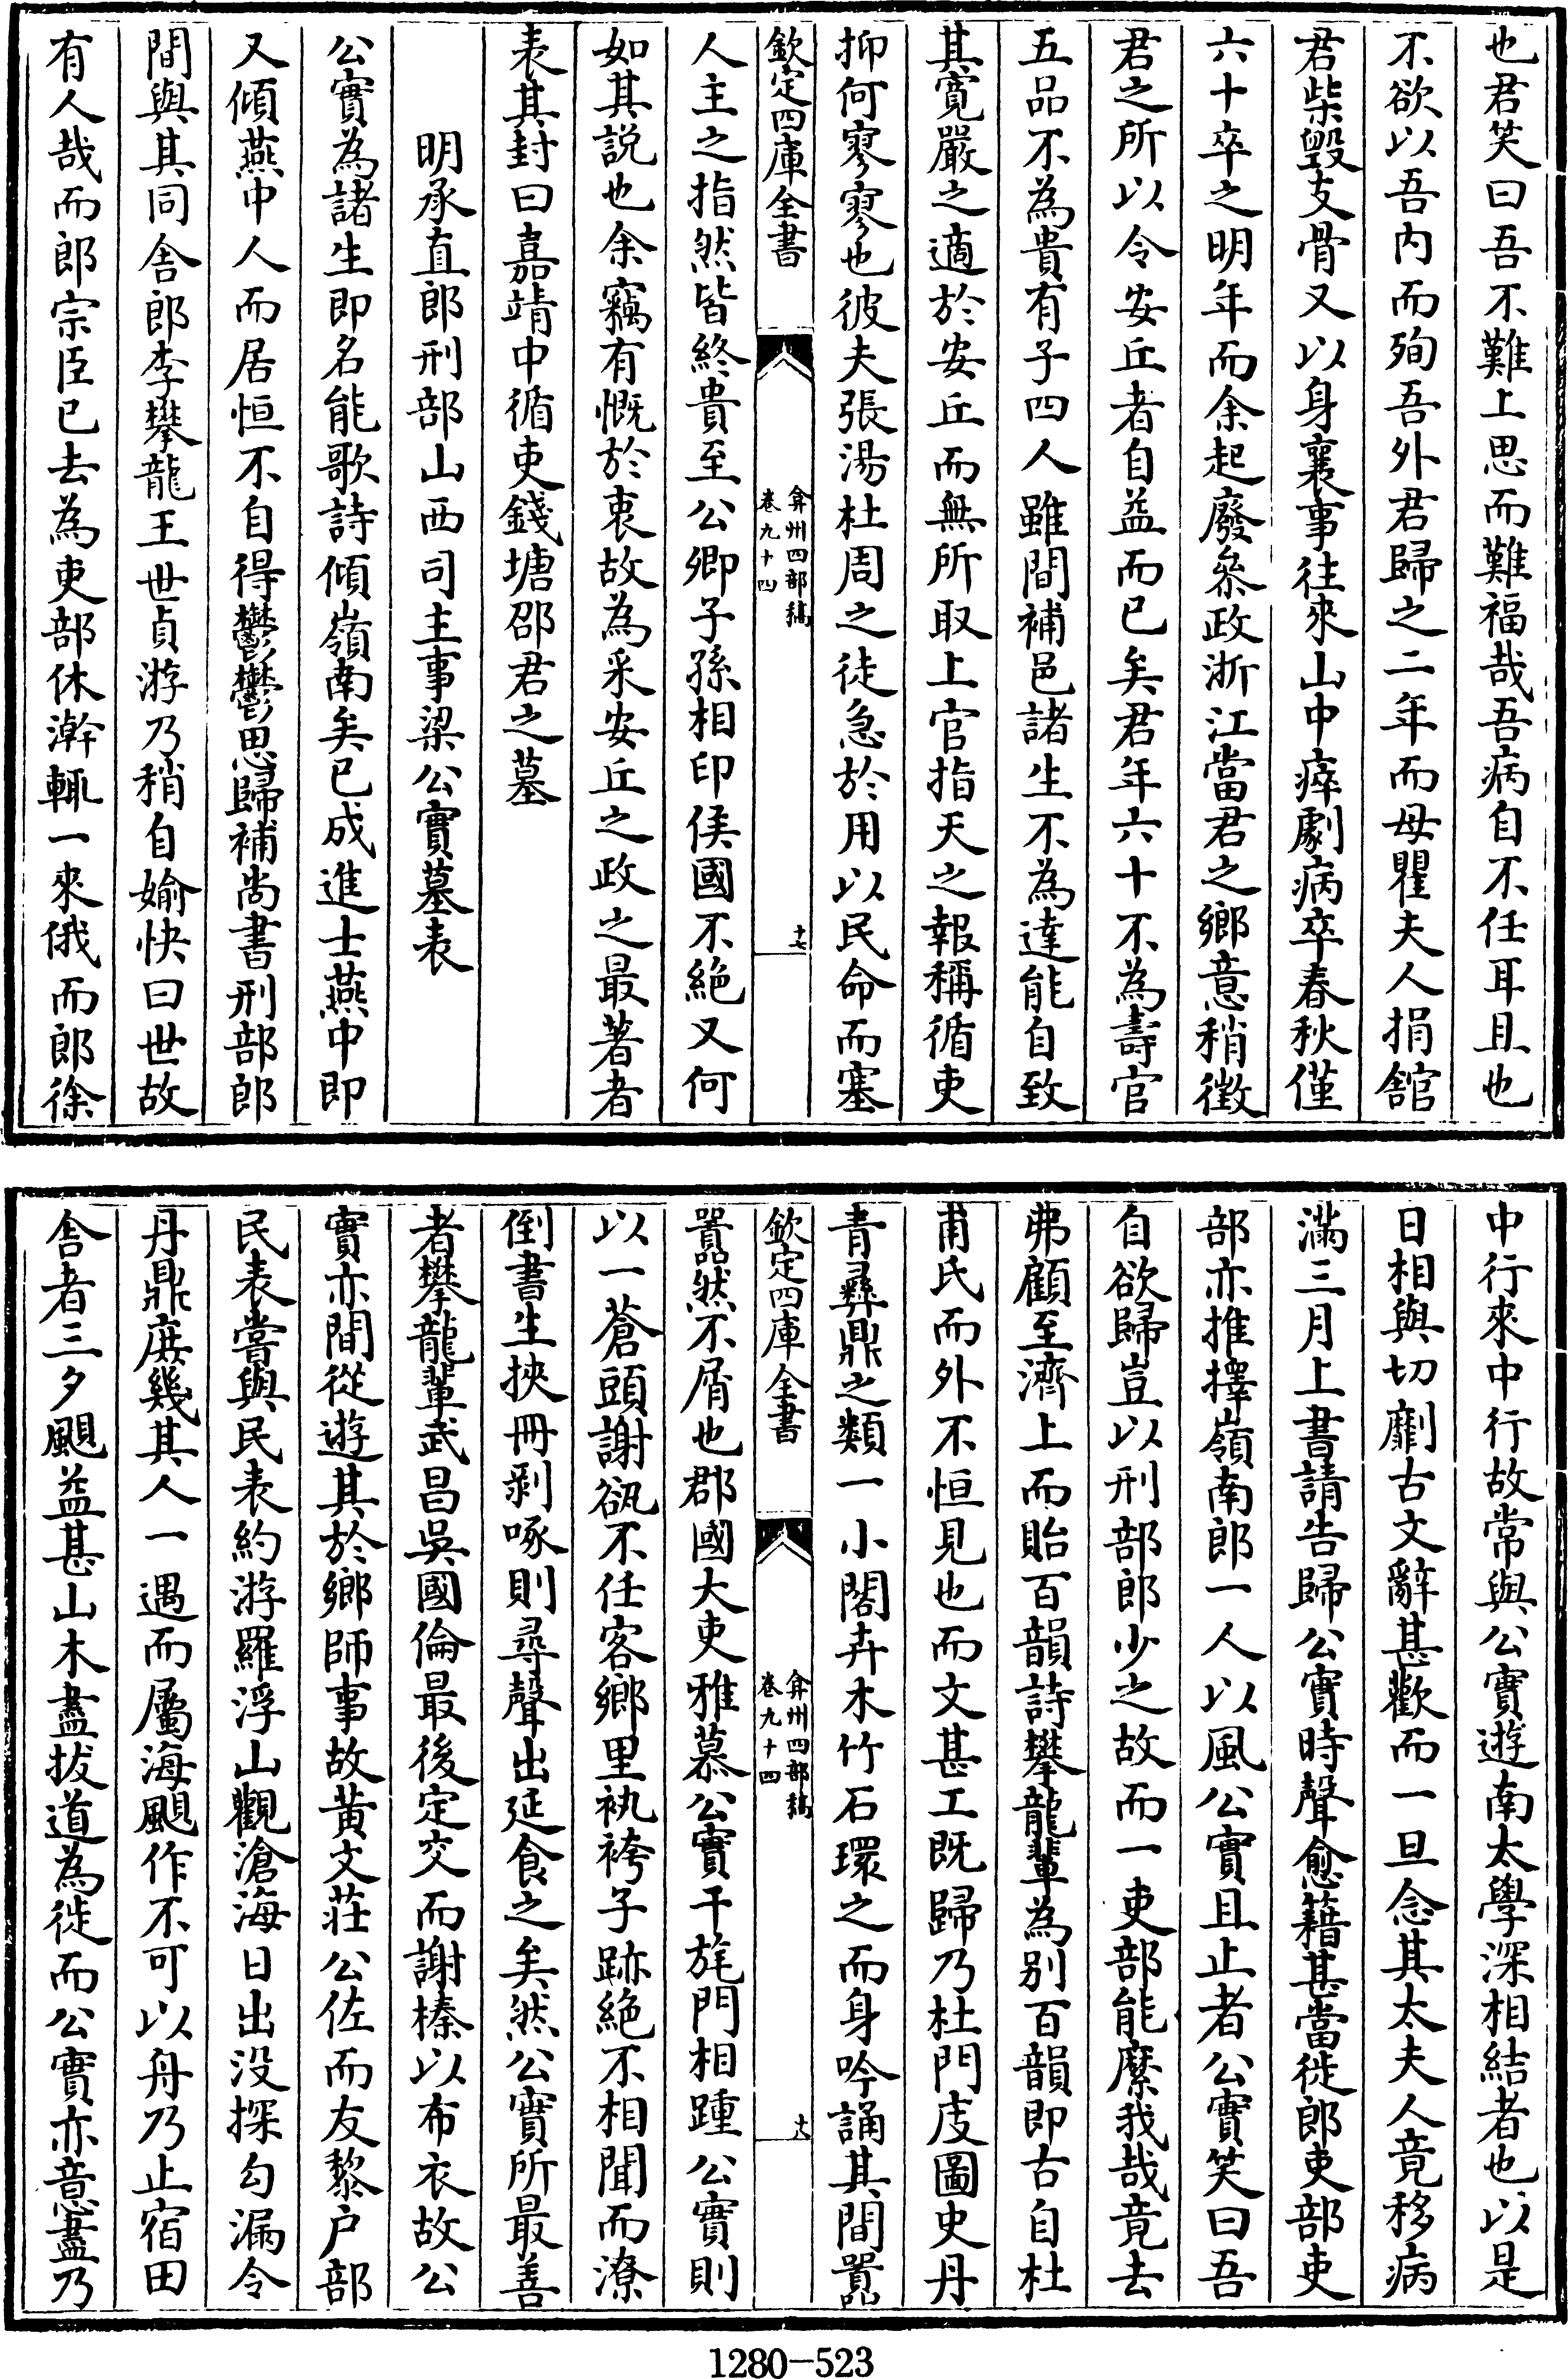 也君笑曰吾不難上思而難福哉吾病自不任耳且也
不欲以吾内而殉吾外君歸之二年而母瞿夫人捐舘
君柴毀支骨又以身襄事往來山中瘁劇病卒春秋僅
六十卒之明年而余起廢叅政浙江當君之鄉意稍徵
君之所以令安丘者自益而已矣君年六十不為壽官
五品不為貴有子四人雖間補邑諸生不為達能自致
其寛嚴之適於安丘而無所取上官指天之報稱循吏
抑何寥寥也彼夫張湯杜周之徒急於用以民命而塞
欽定四庫全書
弇州四部稿
卷九十四
十七
人主之指然皆終貴至公卿子孫相印侯國不絶又何
如其説也余竊有慨於衷故為采安丘之政之最著者
表其封曰嘉靖中循吏錢塘邵君之墓
明承直郎刑部山西司主事梁公實墓表
公實為諸生即名能歌詩傾嶺南矣已成進士燕中即
又傾燕中人而居恒不自得鬱鬱思歸補尚書刑部郎
間與其同舍郎李攀龍王世貞游乃稍自媮快曰世故
有人哉而郎宗臣已去為吏部休澣輒一來俄而郎徐
中行來中行故常與公實遊南太學深相結者也以是
日相與切劘古文辭甚歡而一旦念其太夫人竟移病
滿三月上書請告歸公實時聲愈籍甚當徙郎吏部吏
部亦推擇嶺南郎一人以風公實且止者公實笑曰吾
自欲歸豈以刑部郎少之故而一吏部能縻我哉竟去
弗顧至濟上而貽百韻詩攀龍輩為别百韻即古自杜
甫氏而外不恒見也而文甚工既歸乃杜門庋圖史丹
青彛鼎之類一小閣卉木竹石環之而身吟誦其間囂
欽定四庫全書
弇州四部稿
卷九十四
十八
囂然不屑也郡國大吏雅慕公實干旄門相踵公實則
以一蒼頭謝瓻不任客鄉里紈袴子跡絶不相聞而潦
倒書生挾冊剥啄則尋聲出延食之矣然公實所最善
者攀龍輩武昌吳國倫最後定交而謝榛以布衣故公
實亦間從遊其於鄉師事故黄文莊公佐而友黎户部
民表嘗與民表約游羅浮山觀滄海日出没探勾漏令
丹鼎庻幾其人一遇而屬海颶作不可以舟乃止宿田
舎者三夕颶益甚山木盡拔道為徙而公實亦意盡乃
1280-523